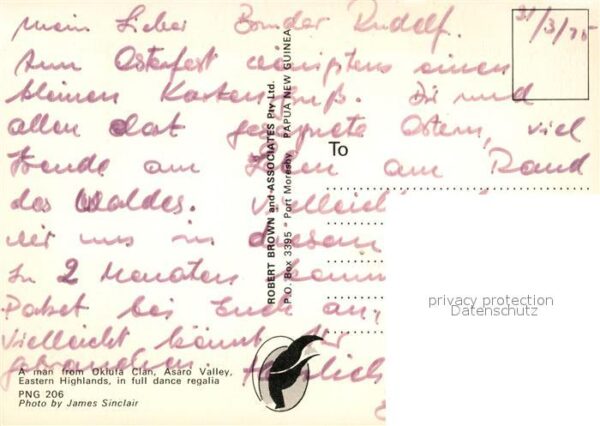 mein Lieber Bruder Rudolf. 31/3/75
Zum Osterfest wenigstens einen
kleinen Kartengruß. Dir und
allen dort gesegnete Ostern, viel
Freude am Leben am Rand
des Waldes. Vielleicht
wir uns in diesem
In 2 Monaten kommt
Paket bei Euch an,
vielleicht könnt Ihr
gebrauchen. Herzlich
To
ROBERT BROWN and ASSOCIATES Pty Ltd.
P.O. Box 3395 Port Moresby PAPUA NEW GUINEA
privacy protection
Datenschutz
A man from Okiufa Clan, Asaro Valley,
Eastern Highlands, in full dance regalia
PNG 206
Photo by James Sinclair